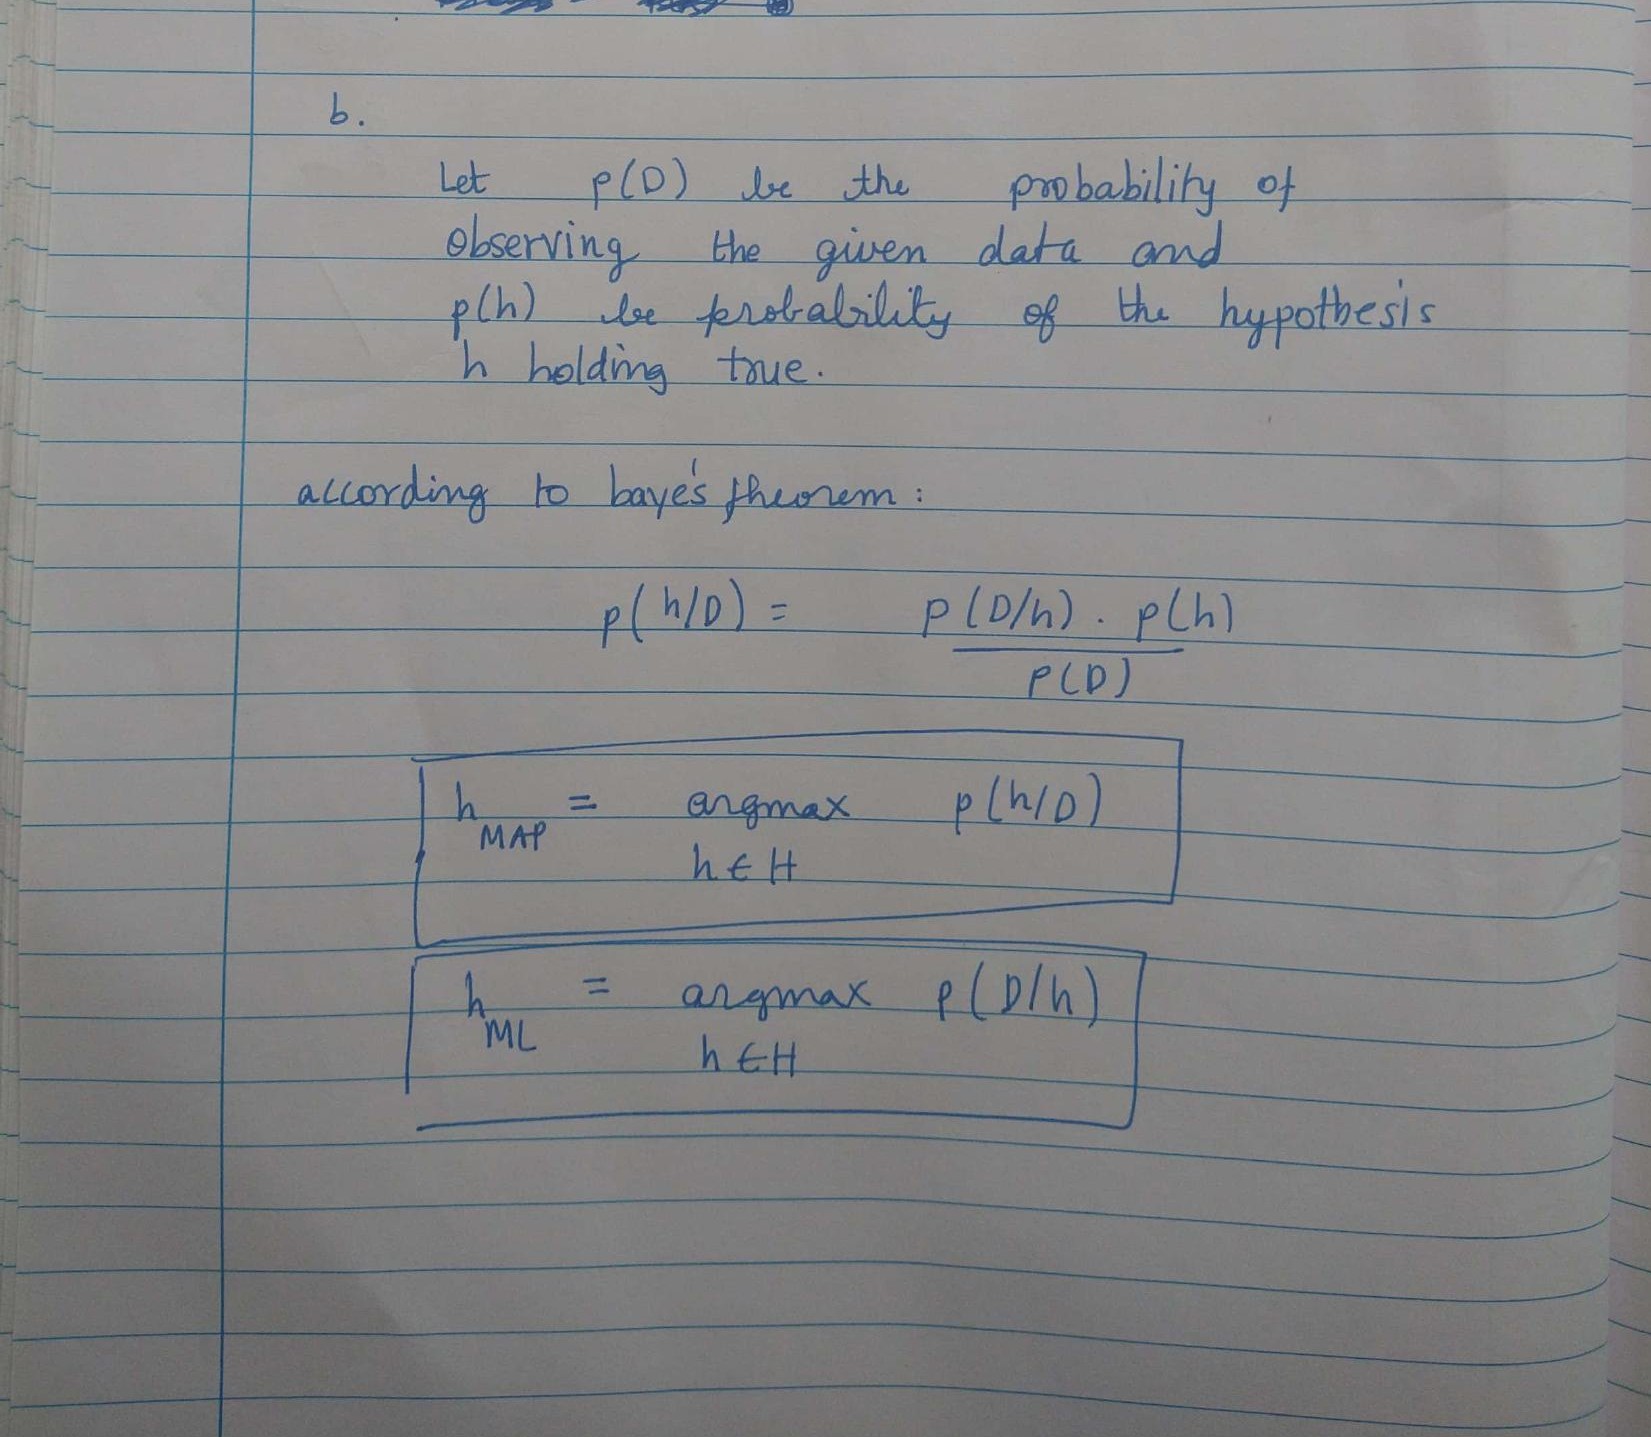 b.
Let p(D) be the probability of
observing the given data and
p(h) be probability of the hypothesis
h holding true.
according to baye's theorem :
p(h/D) = p(D/h) . p(h)
p(D)
h MAP = argmax p(h/D)
h ∈ H
h ML = argmax p(D/h)
h ∈ H